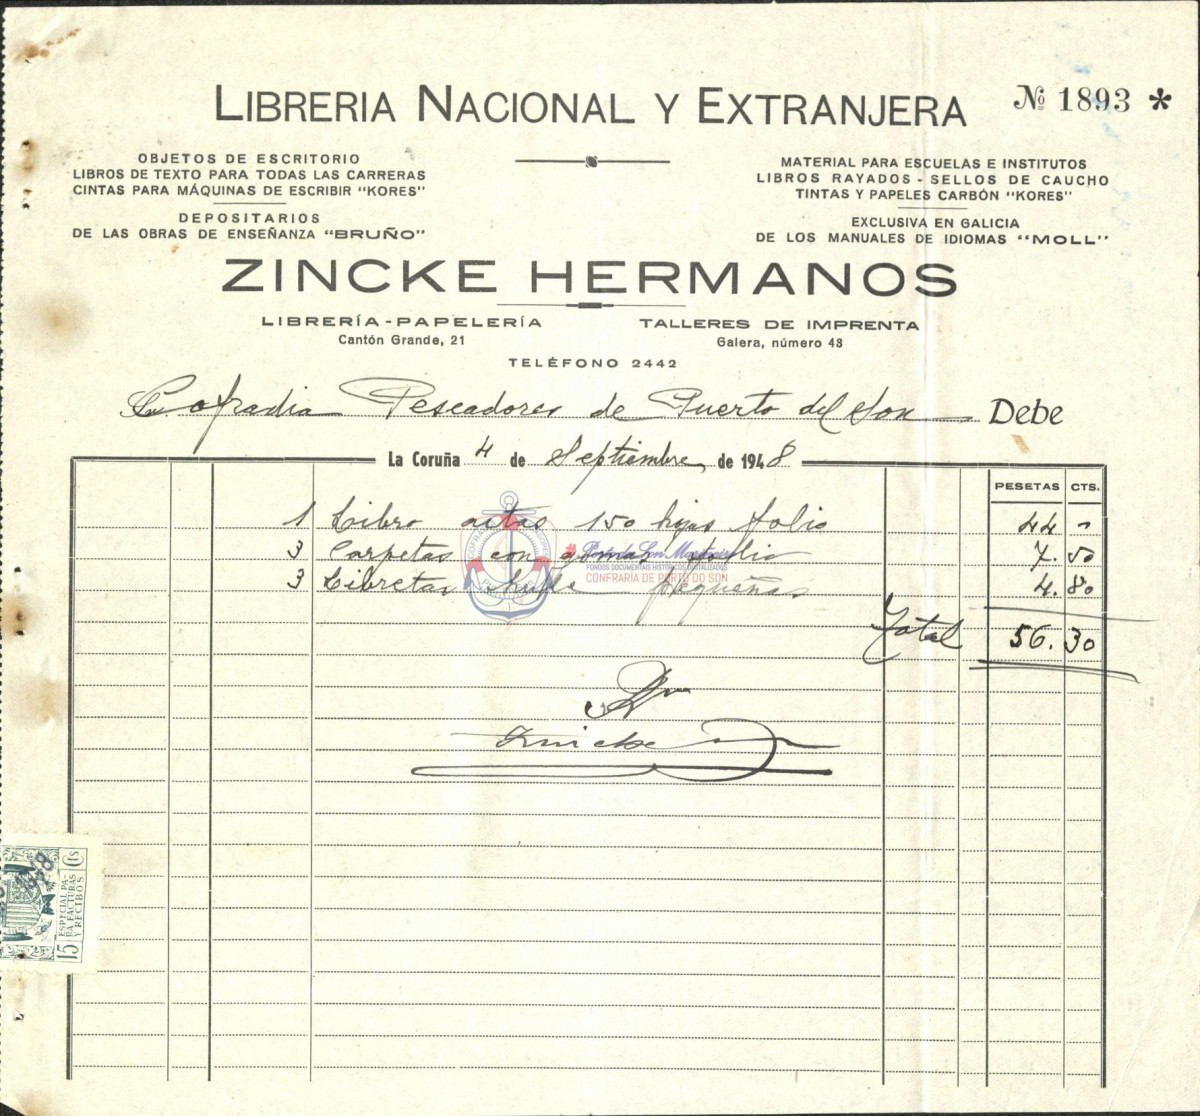 LIBRERIA NACIONAL Y EXTRANJERA
Nº 1893 *
OBJETOS DE ESCRITORIO
LIBROS DE TEXTO PARA TODAS LAS CARRERAS
CINTAS PARA MÁQUINAS DE ESCRIBIR "KORES"
DEPOSITARIOS
DE LAS OBRAS DE ENSEÑANZA "BRUÑO"
MATERIAL PARA ESCUELAS E INSTITUTOS
LIBROS RAYADOS - SELLOS DE CAUCHO
TINTAS Y PAPELES CARBÓN "KORES"
EXCLUSIVA EN GALICIA
DE LOS MANUALES DE IDIOMAS "MOLL"
ZINCKE HERMANOS
LIBRERÍA - PAPELERÍA
Cantón Grande, 21
TALLERES DE IMPRENTA
Galera, número 48
TELÉFONO 2442
Cofradia Pescadores de Puerto del Son Debe
La Coruña 4 de Septiembre de 1948
PESETAS CTS.
1 Libro actas 150 hojas folio 44 -
3 Carpetas con gomas folio 7.50
3 Libretas hule pequeñas 4.80
Total 56.30
Zincke
Porto do Son Marineiro
FONDOS DOCUMENTAIS HISTÓRICOS DIGITALIZADOS
CONFRARÍA DE PORTO DO SON
15 Cts
ESPECIAL PA-
RA FACTURAS
Y RECIBOS